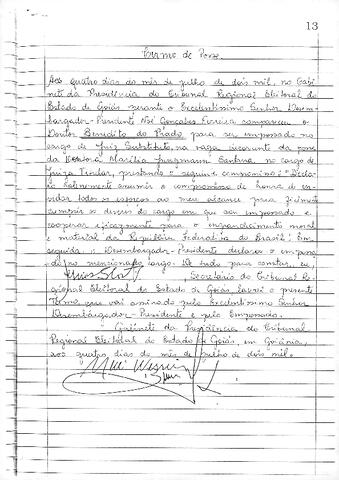 13
Termo de Posse
Aos quatro dias do mês de julho de dois mil, no Gabi
nete da Presidência do Tribunal Regional Eleitoral do
Estado de Goiás perante o Excelentíssimo Senhor Desem
bargador-Presidente Noé Gonçalves Ferreira compareceu o
Doutor Benedito do Prado para ser empossado no
cargo de Juiz Substituto, na vaga decorrente da posse
da Doutora Marília Jungmann Santana no cargo de
Juíza Titular, prestando o seguinte compromisso: "Decla
ro solenemente assumir o compromisso de honra de en
vidar todos os esforços ao meu alcance para fielmente
cumprir os deveres do cargo em que sou empossado e
cooperar eficazmente para o engrandecimento moral
e material da República Federativa do Brasil". Em
seguida o Desembargador-Presidente declarou-o empossa
do no mencionado cargo. De tudo para constar, eu,
Secretário do Tribunal Re
gional Eleitoral do Estado de Goiás, lavrei o presente
Termo que vai assinado pelo Excelentíssimo Senhor
Desembargador-Presidente e pelo Empossado.
Gabinete da Presidência do Tribunal
Regional Eleitoral do Estado de Goiás, em Goiânia,
aos quatro dias do mês de julho de dois mil.